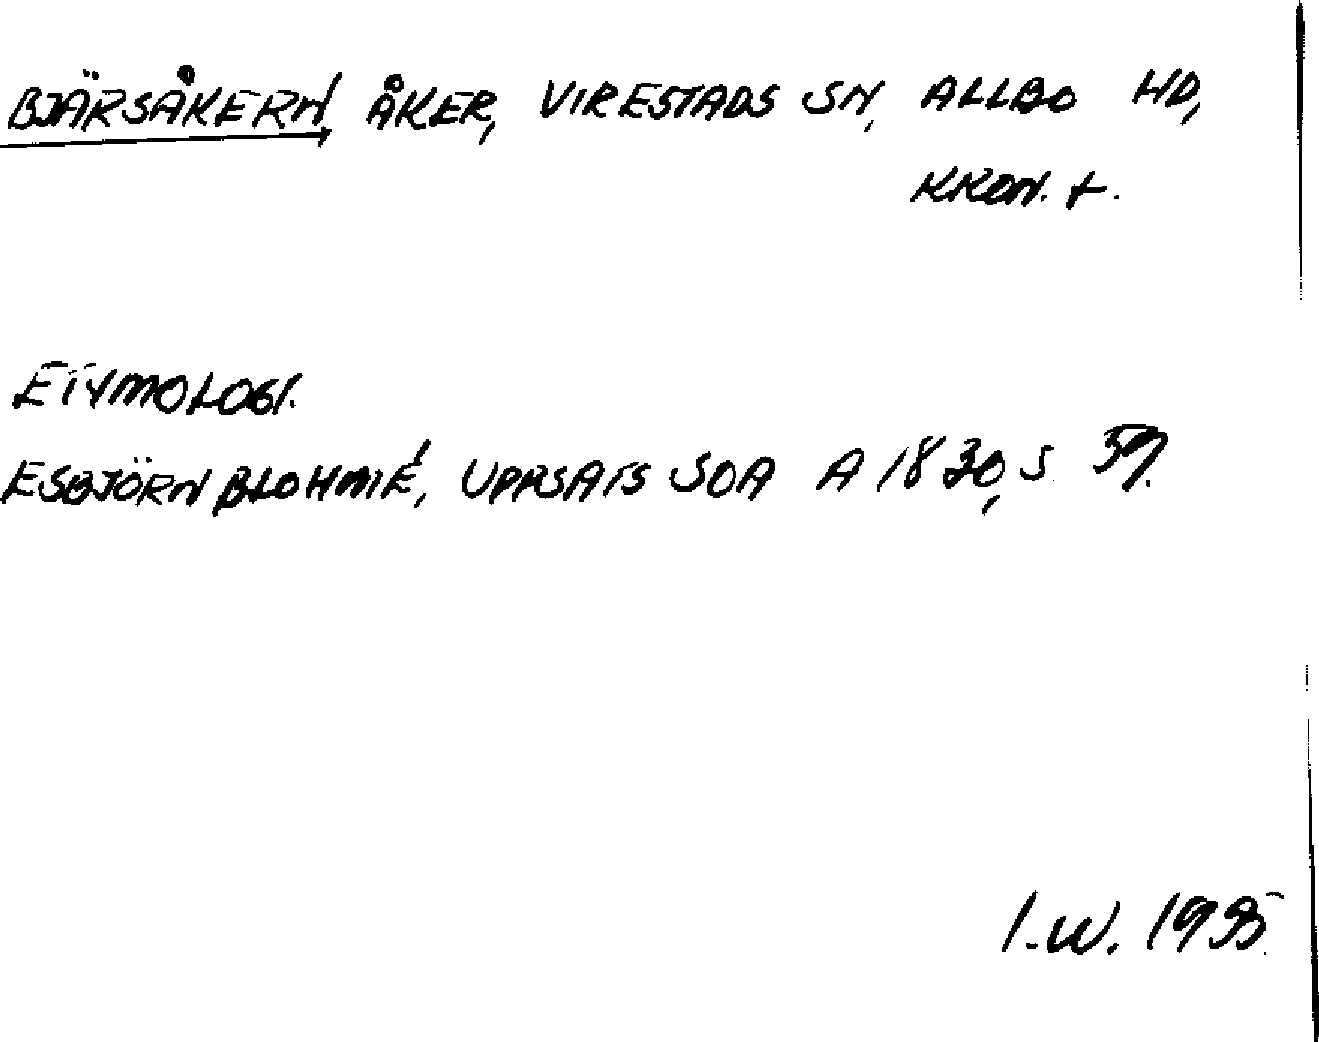 BJÄRSÅKERN, ÅKER, VIRESTADS SN, ALLBO HD,
KRON. L.
ETYMOLOGI.
ESBJÖRN BLOHMÉ, UPPSATS SOA A 1830, S. 57.
I.W. 1995.